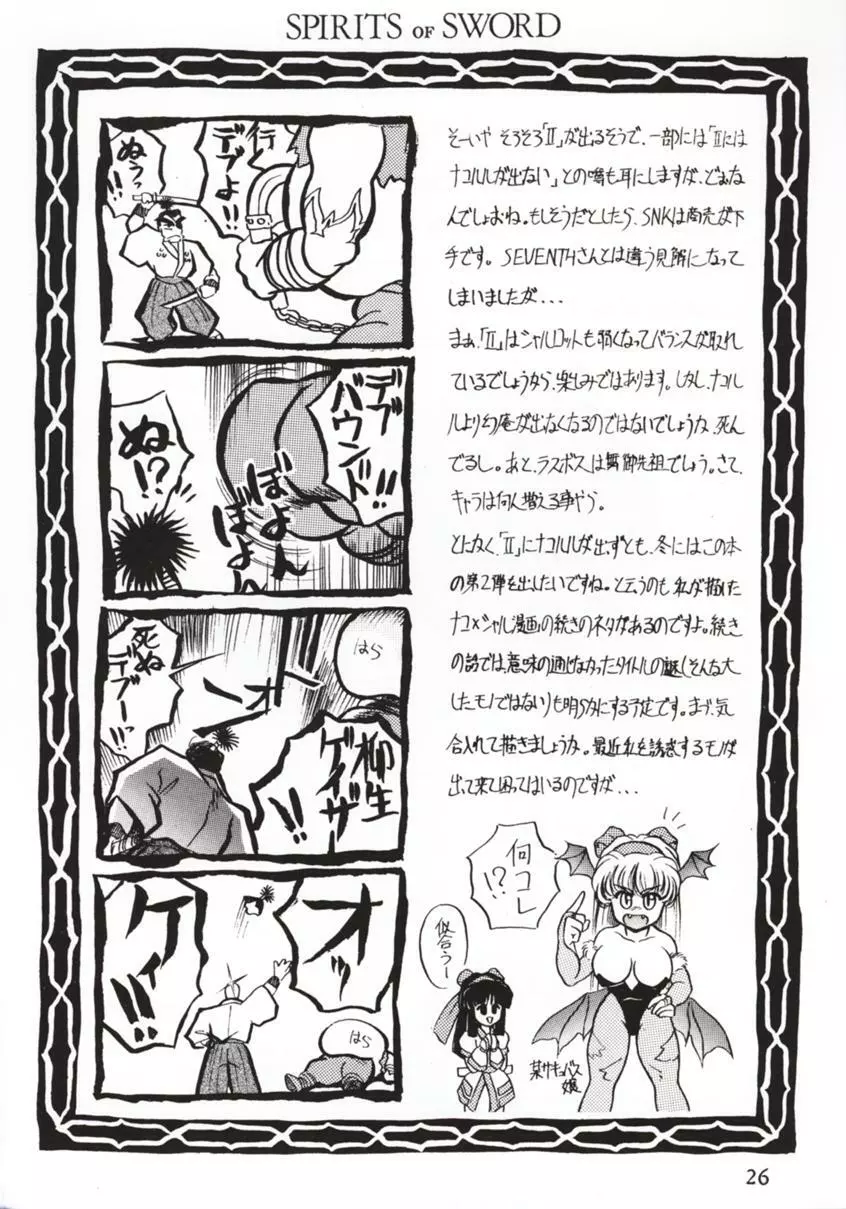 SPIRITS OF SWORD
行くデブよ!!
ぬうっ!!
デブバウンド!!
ぼよんぼよん
ぬ!?
はら
ンオー
柳生ゲイザー!!
死ねデブー!!
オッ
ケイ!!
はら
そーいや そろそろ「II」が出るそうで、一部には「IIには
ナコルルが出ない」との噂も耳にしますが、どぉな
んでしょおね。もしそうだとしたら、SNKは商売が下
手です。SEVENTHさんとは違う見解になって
しまいましたが...
まぁ「II」はシャルロットも弱くなってバランスが取れ
ているでしょうから、楽しみではあります。しかし、ナコル
ルより幻庵が出なくなるのではないでしょうか、死ん
でるし。あと、ラスボスは舞御先祖でしょう。さて、
キャラは何人増える事やら。
とにかく、「II」にナコルルが出ずとも、冬にはこの本
の第2弾を出したいですね。と云うのも私が描いた
ナコ×シャル漫画の続きのネタがあるのですよ。続き
の話では、意味の通じなかったタイトルの謎(そんな大
したモノではない)も明らかにする予定です。まず、気
合入れて描きましょうか。最近私を誘惑するモノが
出て来て困ってはいるのですが...
何コレ!?
似合うー
某サキュバス嬢
26